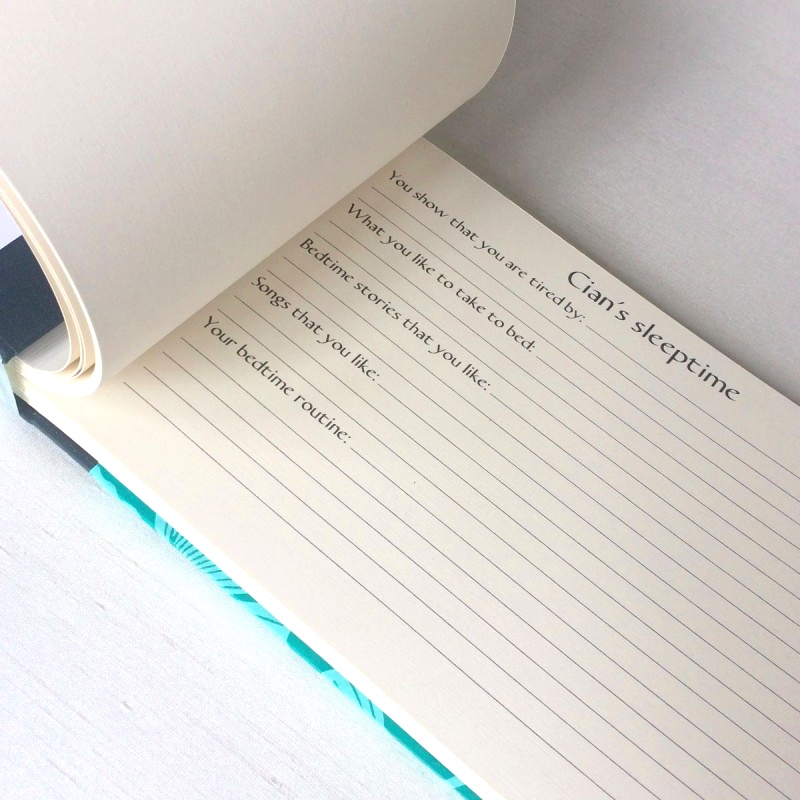 Cian's sleeptime
You show that you are tired by:
What you like to take to bed:
Bedtime stories that you like:
Songs that you like:
Your bedtime routine: